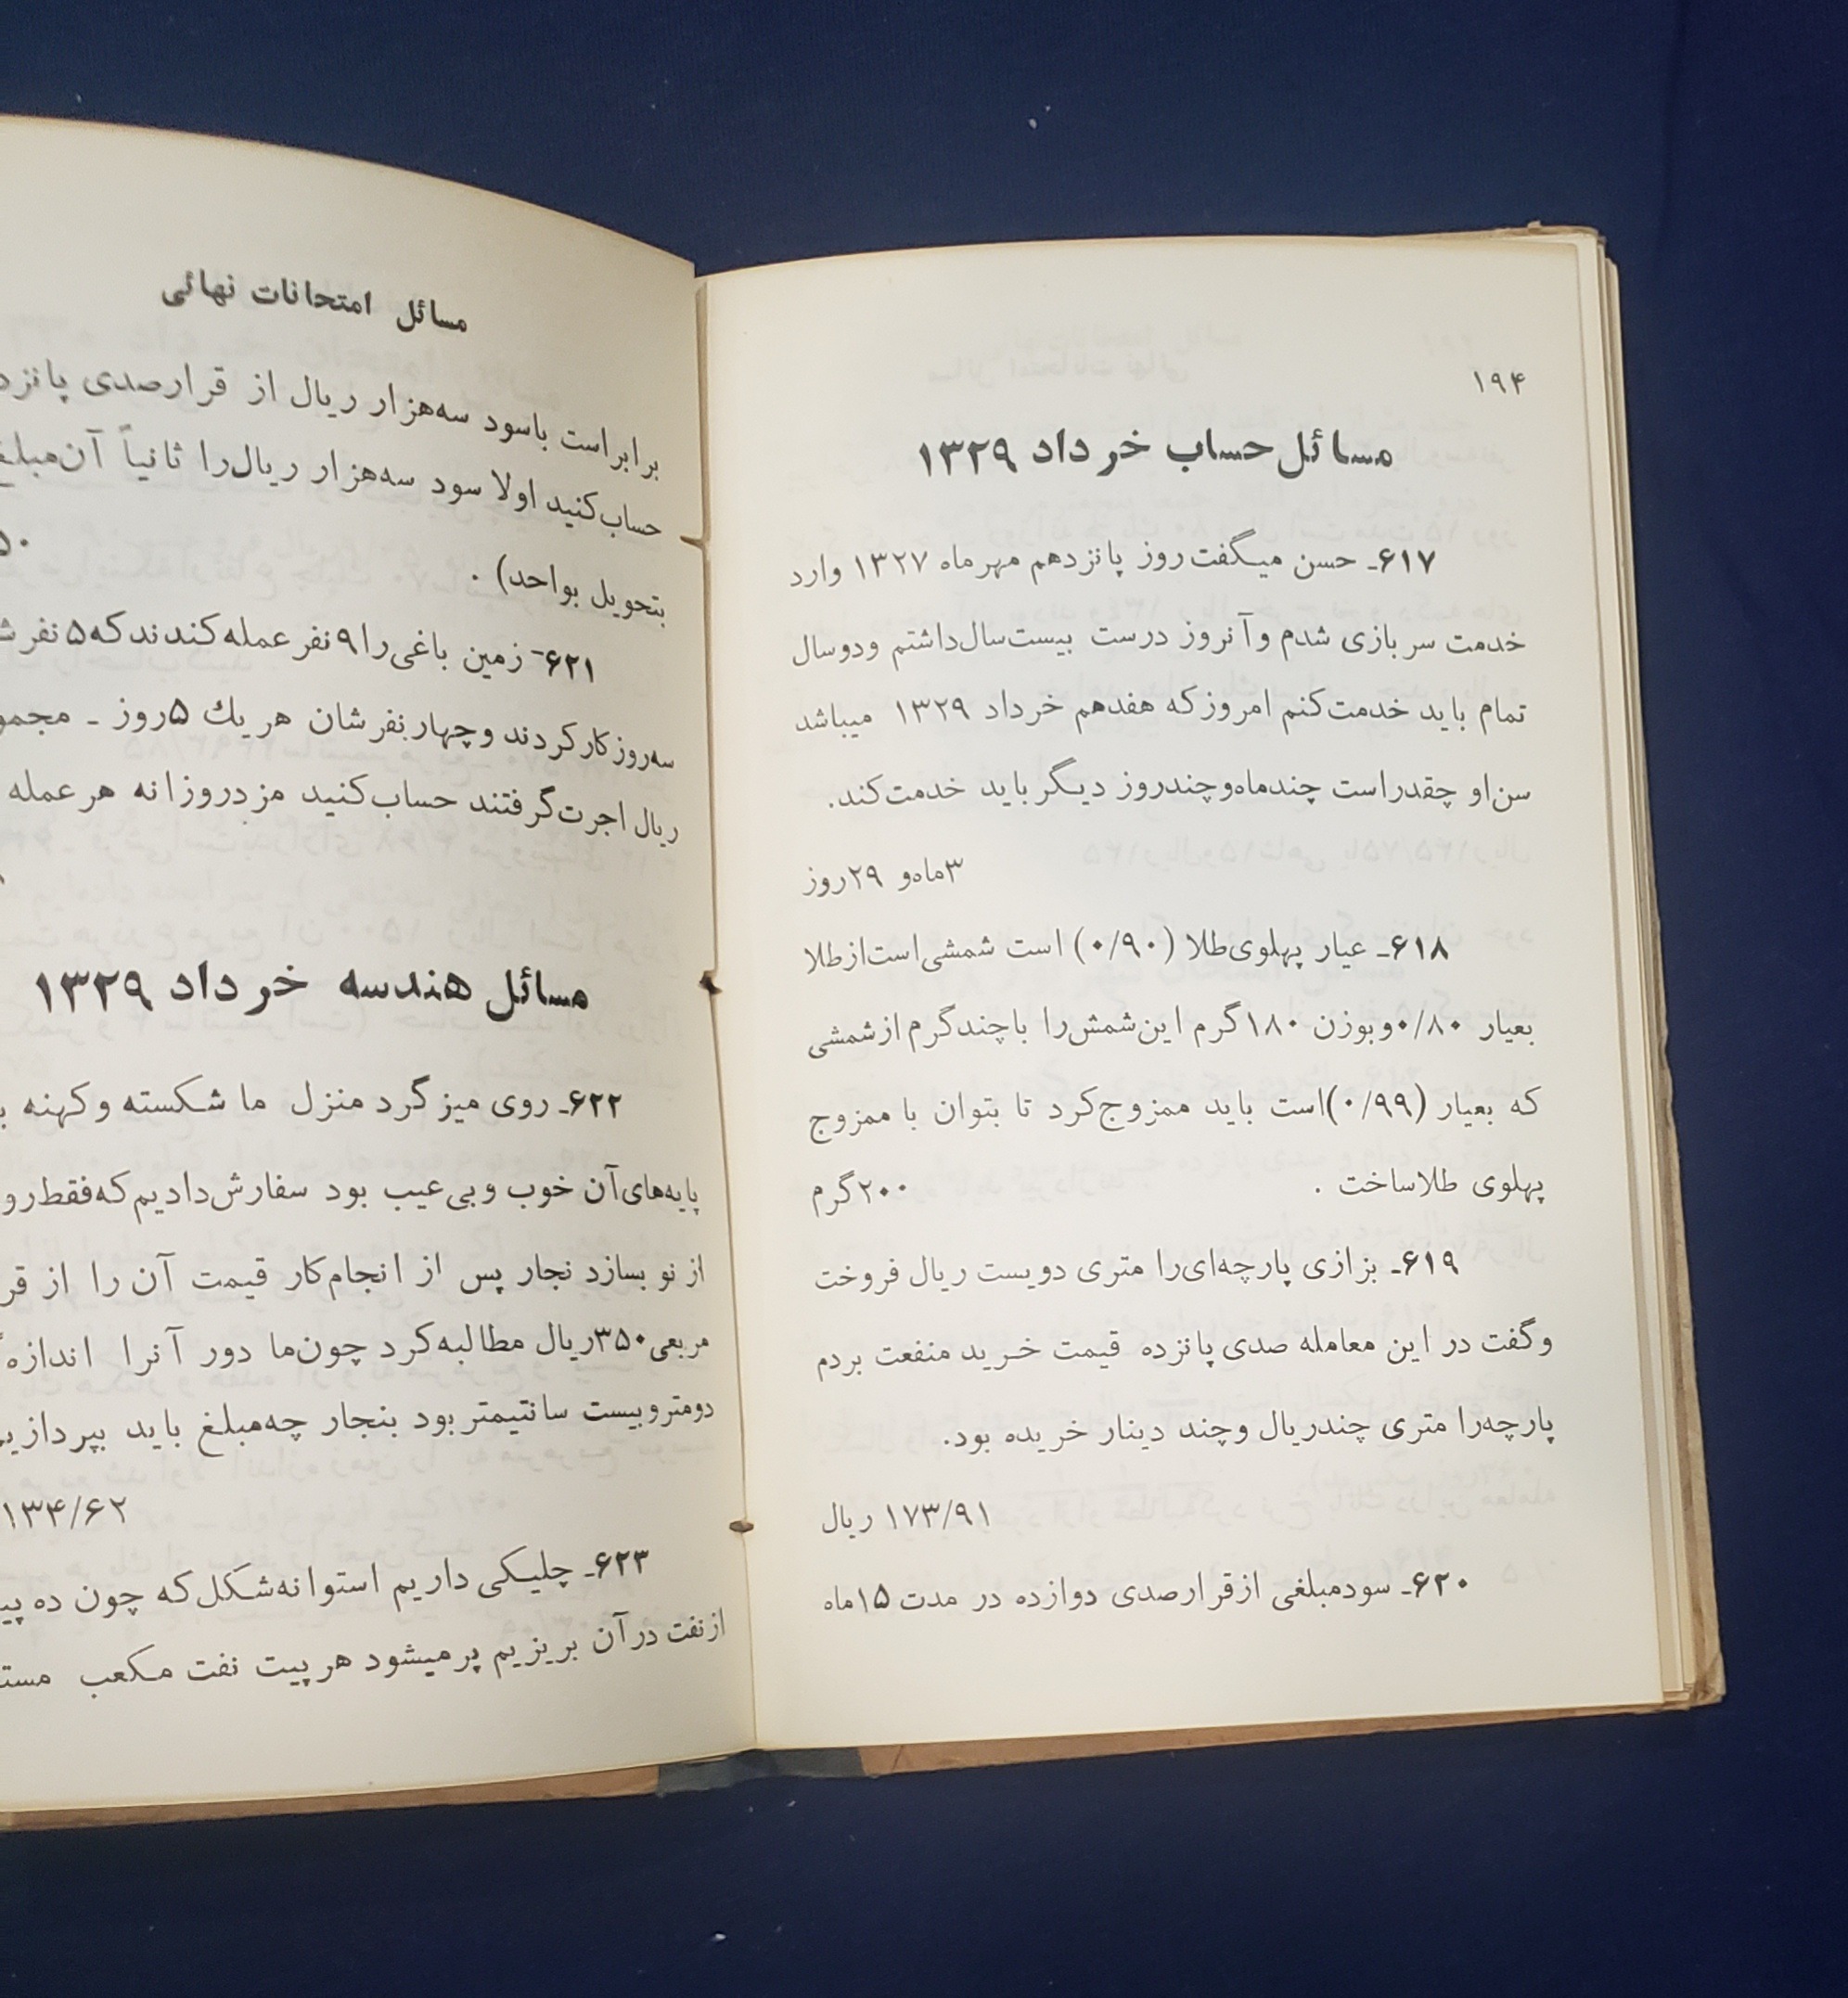 ۱۹۴
مسائل حساب خرداد ۱۳۲۹
۶۱۷ـ حسن میگفت روز پانزدهم مهرماه ۱۳۲۷ وارد
خدمت سربازی شدم وآنروز درست بیست‌سال‌داشتم ودوسال
تمام باید خدمت‌کنم امروزکه هفدهم خرداد ۱۳۲۹ میباشد
سن‌او چقدراست چندماه‌وچندروز دیگرباید خدمت‌کند.
۳ماه‌و ۲۹روز
۶۱۸ـ عیار پهلوی‌طلا (۰/۹۰) است شمشی‌است‌ازطلا
بعیار ۰/۸۰وبوزن ۱۸۰گرم این‌شمش‌را باچندگرم ازشمشی
که بعیار (۰/۹۹)است باید ممزوج‌کرد تا بتوان با ممزوج
پهلوی طلاساخت . ۲۰۰گرم
۶۱۹ـ بزازی پارچه‌ای‌را متری دویست ریال فروخت
وگفت در این معامله صدی پانزده قیمت خرید منفعت بردم
پارچه‌را متری چندریال وچند دینار خریده بود.
۱۷۳/۹۱ ریال
۶۲۰ـ سودمبلغی ازقرارصدی دوازده در مدت ۱۵ماه
مسائل امتحانات نهائی
برابراست باسود سه‌هزار ریال از قرارصدی
حساب‌کنید اولا سود سه‌هزار ریال‌را ثانیاً
بتحویل بواحد) .
۶۲۱- زمین باغی‌را۹نفرعمله‌کندندکه۵نفر
سه‌روزکارکردند وچهارنفرشان هریك ۵روز ـ
ریال اجرت‌گرفتند حساب‌کنید مزدروزانه هرعمله
مسائل هندسه خرداد ۱۳۲۹
۶۲۲ـ روی میزگرد منزل ما شکسته وکهنه
پایه‌های‌آن خوب وبی‌عیب بود سفارش‌دادیم‌که‌فقط
از نو بسازد نجار پس از انجام‌کار قیمت آن را از
مربعی۳۵۰ریال مطالبه‌کرد چون‌ما دور آنرا
دومتروبیست سانتیمتربود بنجار چه‌مبلغ باید
۱۳۴/۶۲
۶۲۳ـ چلیکی داریم استوانه‌شکل‌که چون ده
ازنفت درآن بریزیم پرمیشود هرپیت نفت مکعب